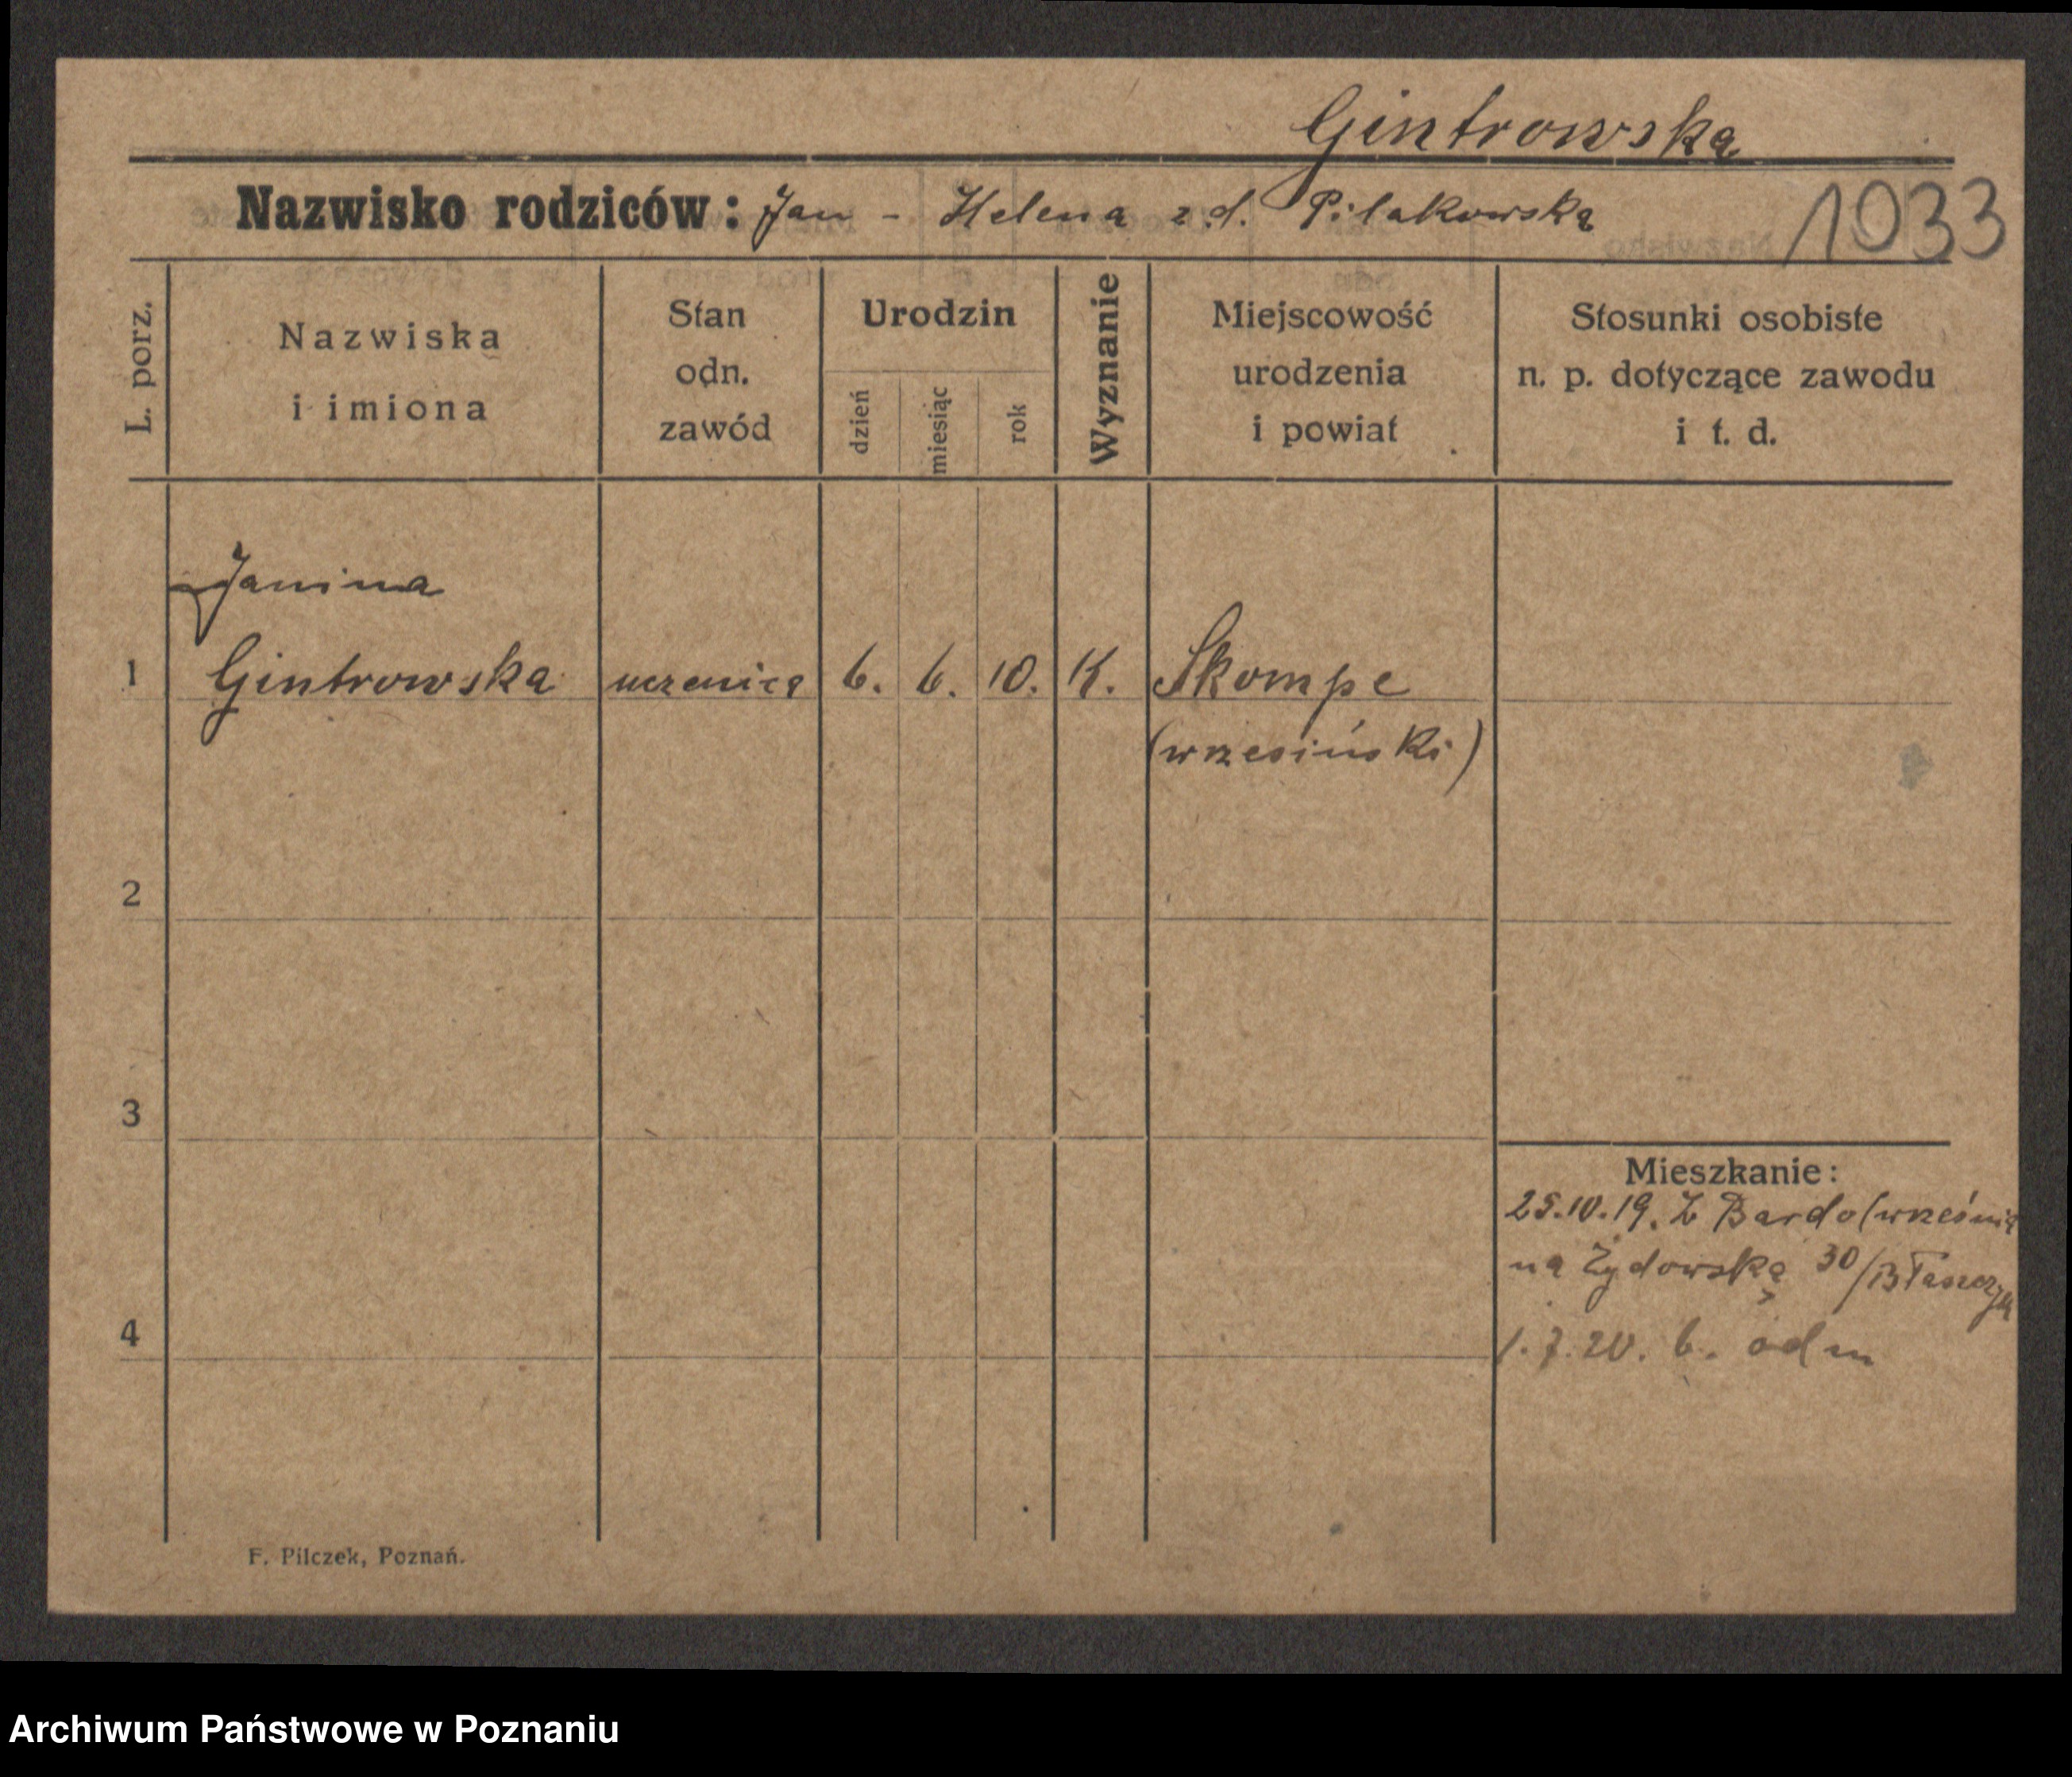 Gintrowska
Nazwisko rodziców: Jan - Helena z d. Pilakowska
1033
L. porz.
Nazwiska
i imiona
Stan
odn.
zawód
Urodzin
dzień
miesiąc
rok
Wyznanie
Miejscowość
urodzenia
i powiat
Stosunki osobiste
n. p. dotyczące zawodu
i t. d.
Janina
1 Gintrowska uczenica 6. 6. 10. K. Skompe
(wrzesiński)
2
3
Mieszkanie:
25.10.19. Z Bardo (września
na Żydowską 30/Błaszczyk
4
1.7.20. b. odm
F. Pilczek, Poznań.
Archiwum Państwowe w Poznaniu